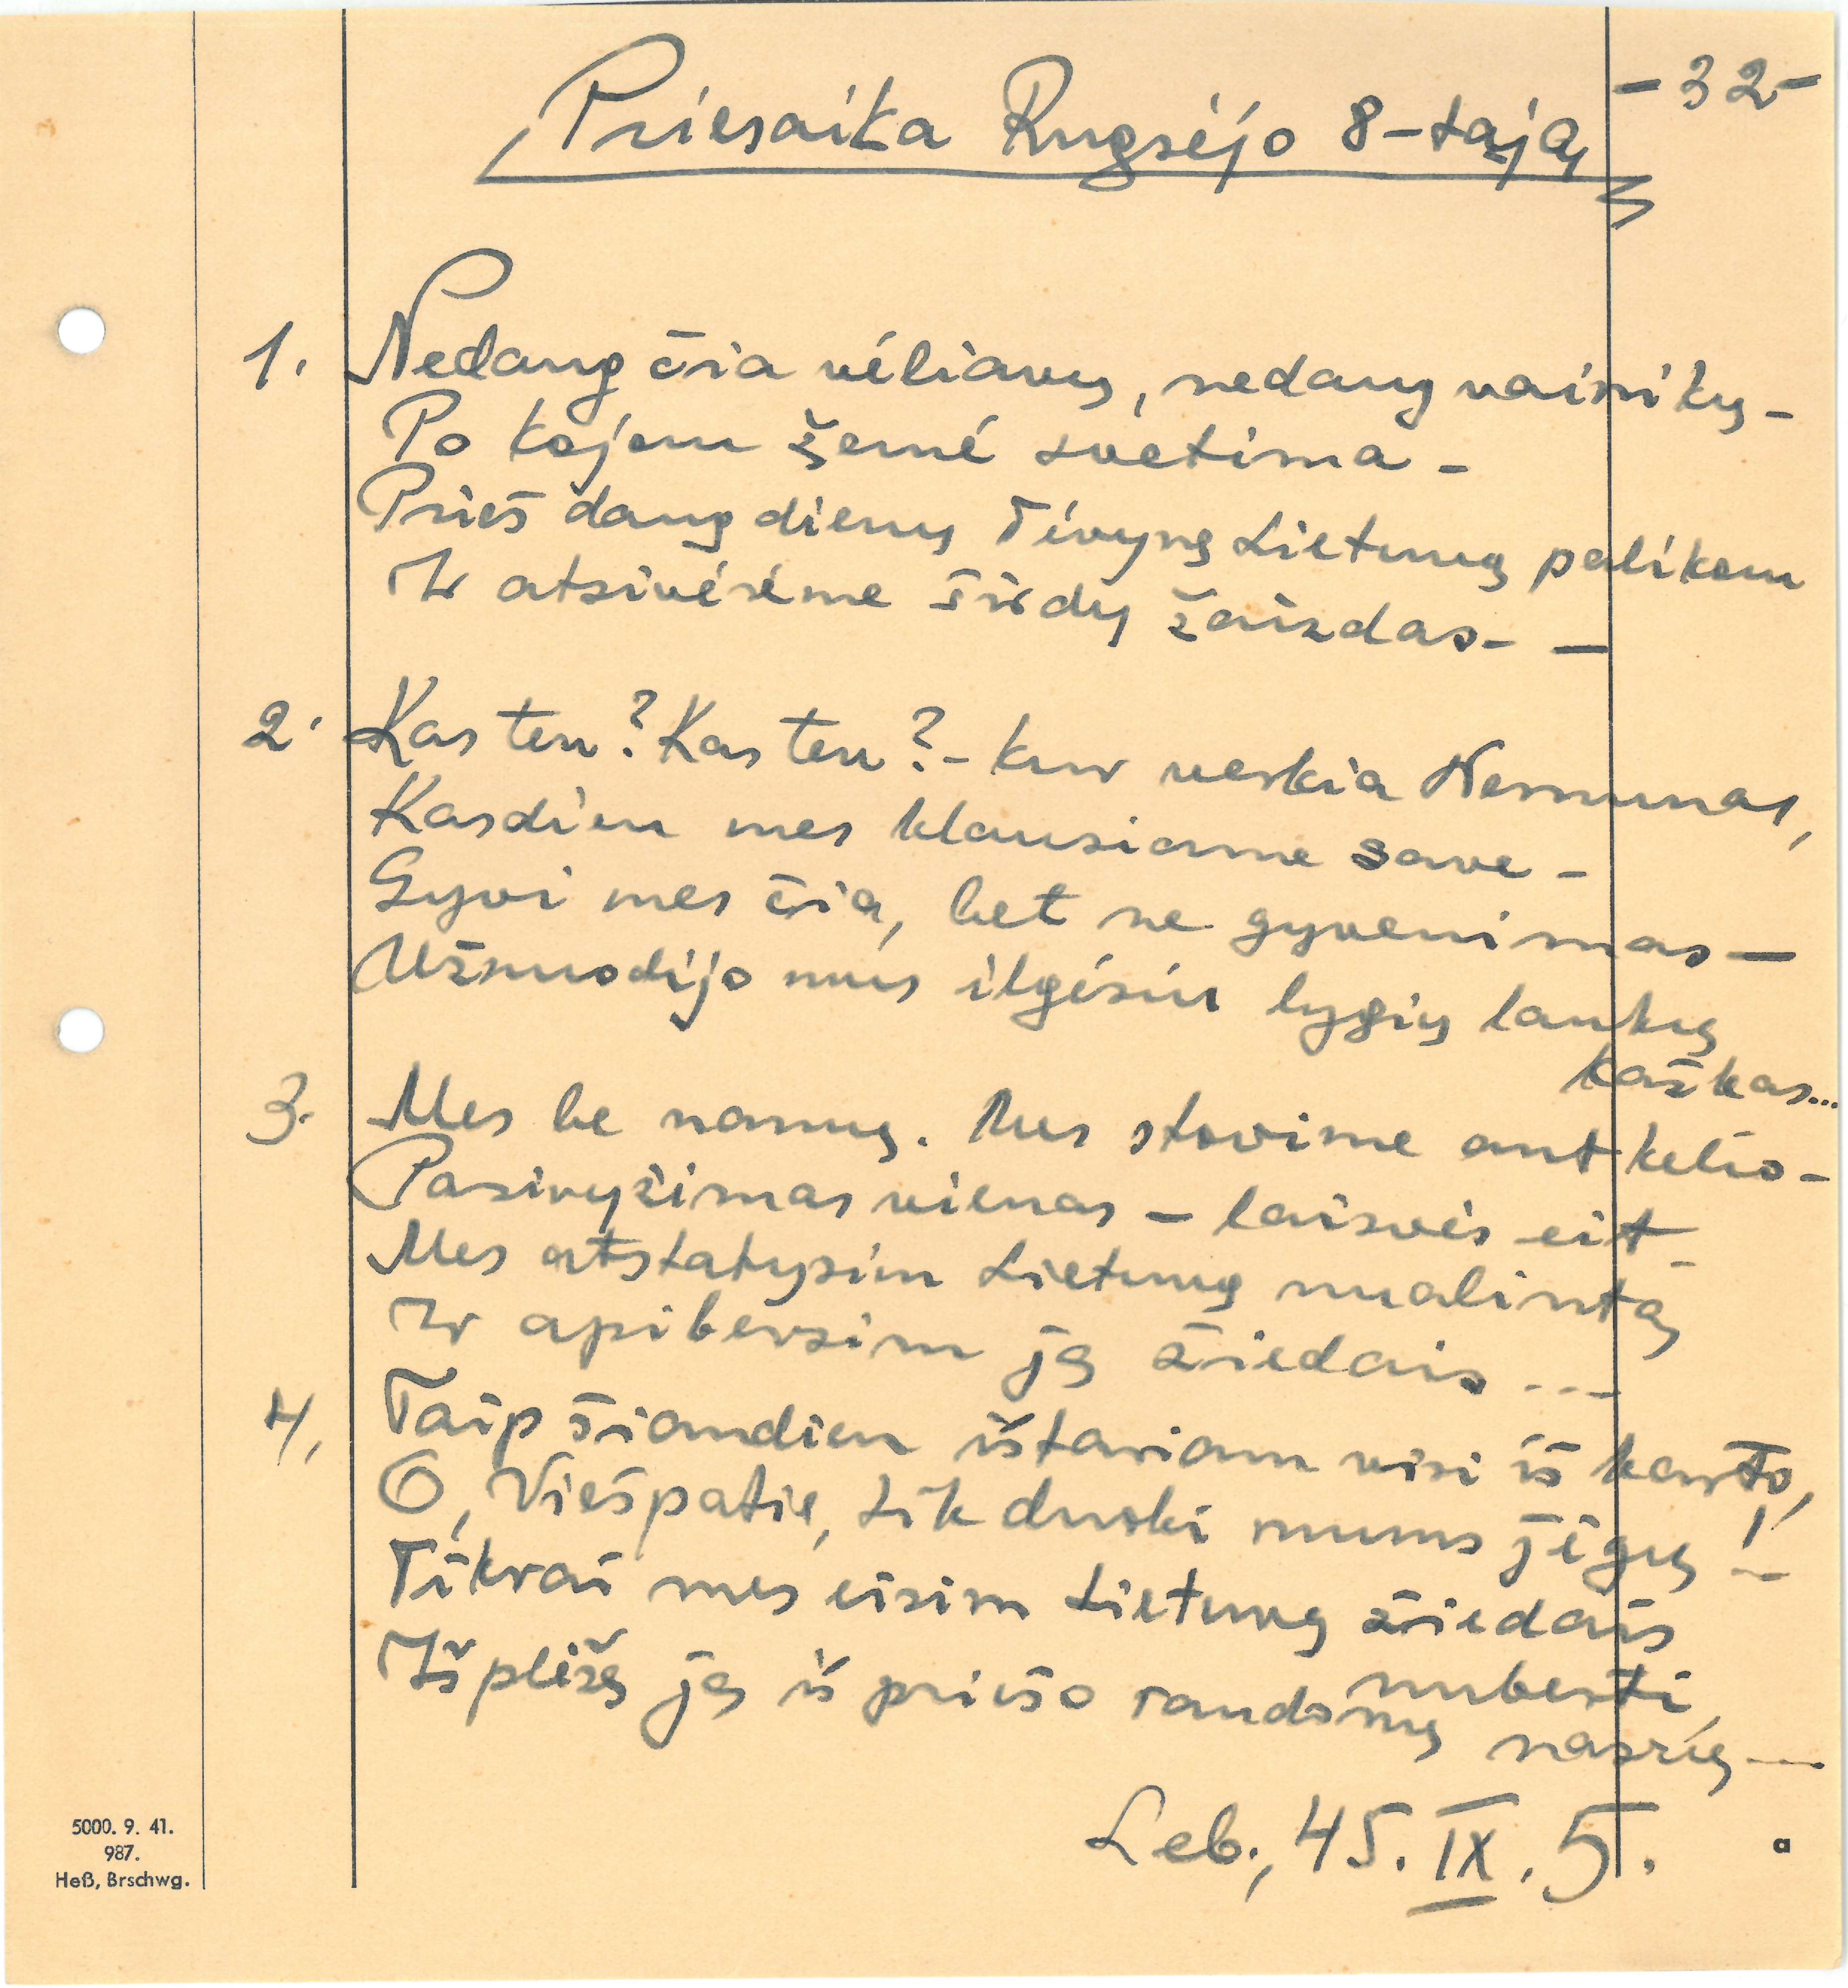 -32-
Priesaika Rugsėjo 8-tąją
1. Nedaug čia vėliavų, nedaug vainikų -
Po kojom žemė svetima -
Prieš daug dienų Tėvynę Lietuvą palikom
Ir atsivėrėme širdy žaizdas - —
2. Kas ten? Kas ten? - kur verkia Nemunas,
Kasdien mes klausiame save -
Gyvi mes čia, bet ne gyvenimas —
Užnuodijo mus ilgėsiu lygių laukų
kažkas...
3. Mes be namų. Mes stovime ant kelio -
Pasiryžimas vienas - laisvės eit -
Mes atstatysim Lietuvą nualintą
Ir apibersim ją žiedais ...
4. Taip šiandien ištariam visi iš karto,
O, Viešpatie, tik duoki mums jėgų! -
Tikrai mes eisim Lietuvą žiedais
nuberti,
Išplėšę ją iš priešo raudonų nasrų ...
Leb., 45. IX. 5.
5000. 9. 41.
987.
Heß, Brschwg.
a